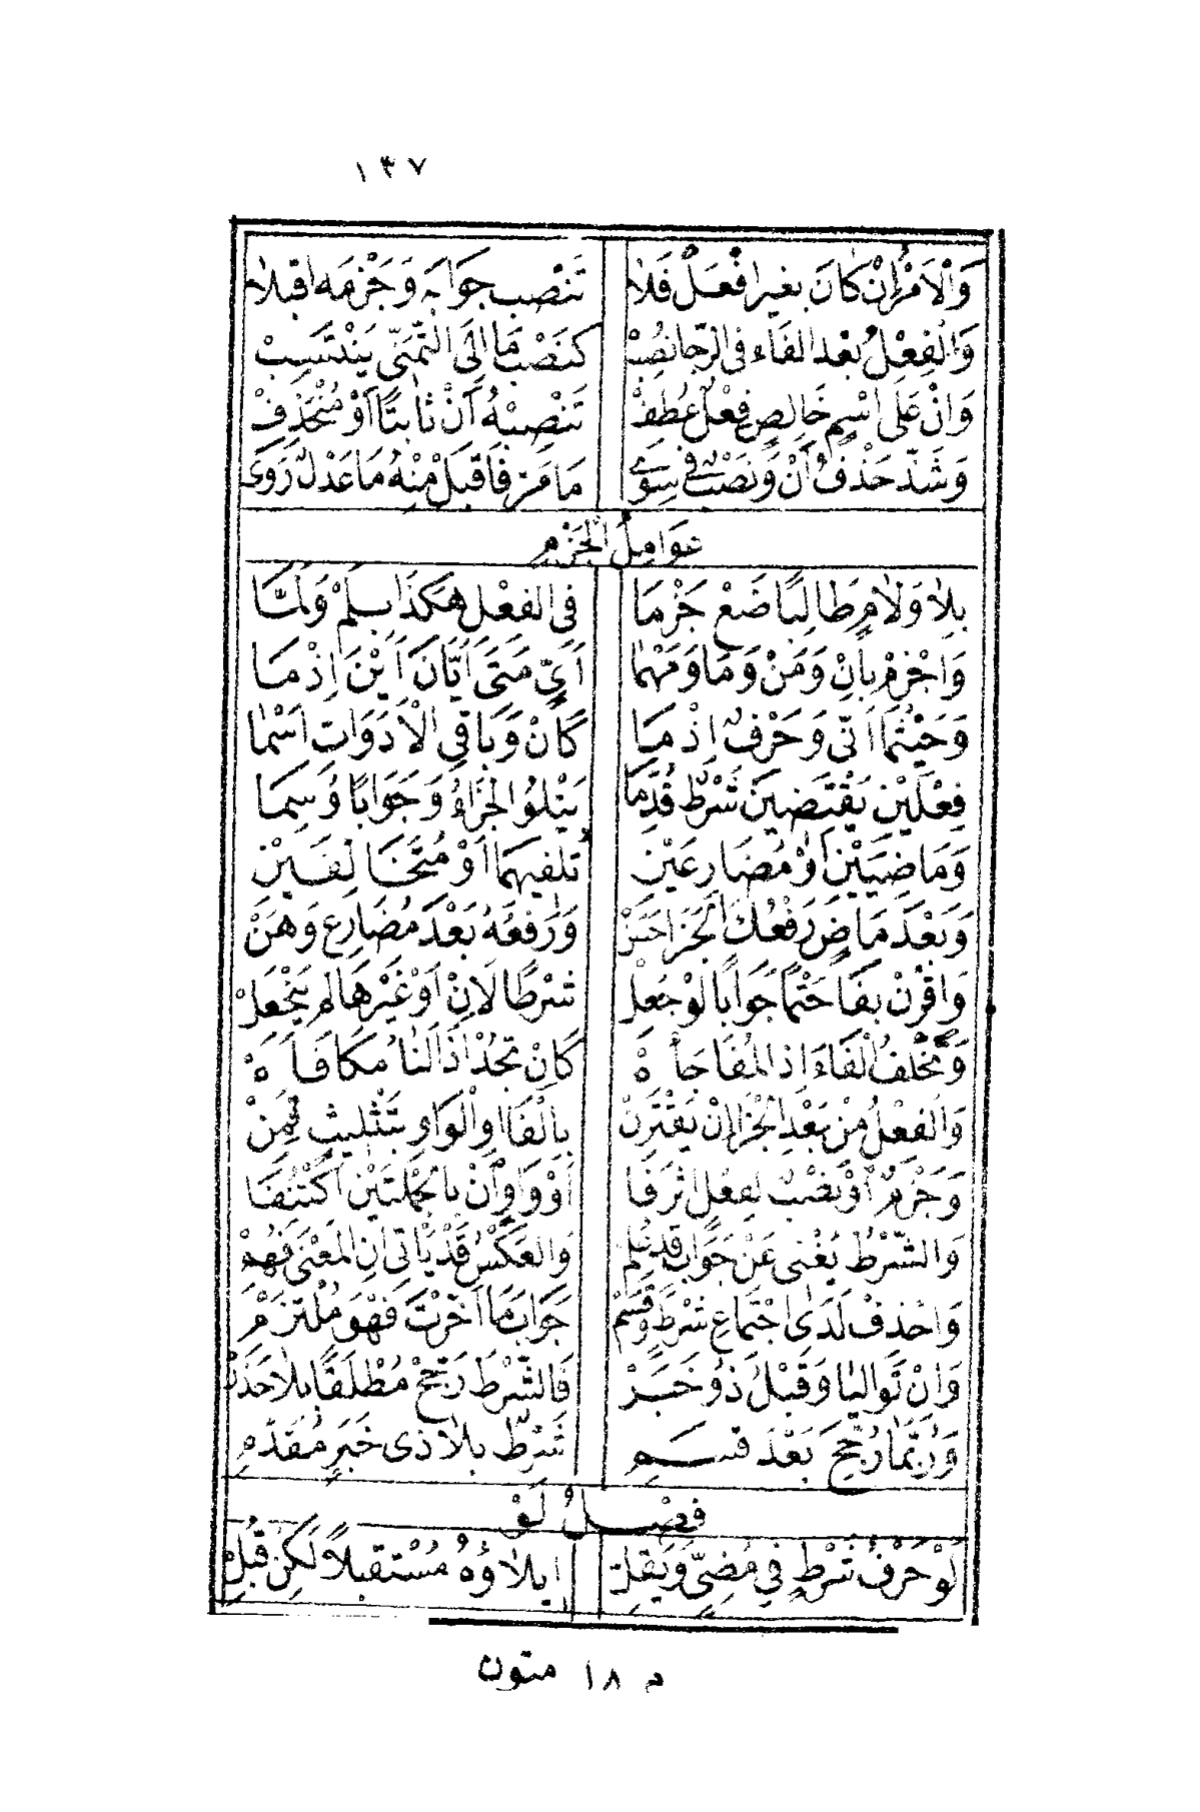 ١٣٧
وَالْأَمْرُ إِنْ كَانَ بِغَيْرِ افْعَلْ فَلَا تَنْصِبْ جَوَابَهُ وَجَزْمَهُ اقْبَلَا
وَالْفِعْلُ بَعْدَ الْفَاءِ فِي الرَّجَا نُصِبْ كَنَصْبِ مَا إِلَى التَّمَنِّي يَنْتَسِبْ
وَإِنْ عَلَى اسْمٍ خَالِصٍ فِعْلٌ عُطِفْ تَنْصِبُهُ أَنْ ثَابِتًا أَوْ مُنْحَذِفْ
وَشَذَّ حَذْفُ أَنْ وَنَصْبٌ فِي سِوَى مَا مَرَّ فَاقْبَلْ مِنْهُ مَا عَدْلٌ رَوَى
عَوَامِلُ الْجَزْمِ
بِلَا وَلَامٍ طَالِبًا ضَعْ جَزْمَا فِي الْفِعْلِ هَكَذَا بِلَمْ وَلَمَّا
وَاجْزِمْ بِإِنْ وَمَنْ وَمَا وَمَهْمَا أَيٍّ مَتَى أَيَّانَ أَيْنَ إِذْ مَا
وَحَيْثُمَا أَنَّى وَحَرْفٌ إِذْ مَا كَإِنْ وَبَاقِي الْأَدَوَاتِ أَسْمَا
فِعْلَيْنِ يَقْتَضِينَ شَرْطٌ قُدِّمَا يَتْلُو الْجَزَاءُ وَجَوَابًا وُسِمَا
وَمَاضِيَيْنِ أَوْ مُضَارِعَيْنِ تُلْفِيهِمَا أَوْ مُتَخَالِفَيْنِ
وَبَعْدَ مَاضٍ رَفْعُكَ الْجَزَا حَسَنْ وَرَفْعُهُ بَعْدَ مُضَارِعٍ وَهَنْ
وَاقْرُنْ بِفَا حَتْمًا جَوَابًا لَوْ جُعِلْ شَرْطًا لِإِنْ أَوْ غَيْرِهَا لَمْ يَنْجَعِلْ
وَتَخْلُفُ الْفَاءَ إِذَا الْمُفَاجَأَهْ كَإِنْ تَجُدْ إِذًا لَنَا مُكَافَأَهْ
وَالْفِعْلُ مِنْ بَعْدِ الْجَزَا إِنْ يَقْتَرِنْ بِالْفَا أَوِ الْوَاوِ بِتَثْلِيثٍ قَمِنْ
وَجَزْمٌ أَوْ نَصْبٌ لِفِعْلٍ إِثْرَ فَا أَوْ وَاوٍ أَنْ بِالْجُمْلَتَيْنِ اكْتُنِفَا
وَالشَّرْطُ يُغْنِي عَنْ جَوَابٍ قَدْ عُلِمْ وَالْعَكْسُ قَدْ يَأْتِي إِنِ الْمَعْنَى فُهِمْ
وَاحْذِفْ لَدَى اجْتِمَاعِ شَرْطٍ وَقَسَمْ جَوَابَ مَا أَخَّرْتَ فَهْوَ مُلْتَزَمْ
وَإِنْ تَوَالَيَا وَقَبْلُ ذُو خَبَرْ فَالشَّرْطَ رَجِّحْ مُطْلَقًا بِلَا حَذَرْ
وَرُبَّمَا رُجِّحَ بَعْدَ قَسَمِ شَرْطٌ بِلَا ذِي خَبَرٍ مُقَدَّمِ
فَصْلُ لَوْ
لَوْ حَرْفُ شَرْطٍ فِي مُضِيٍّ وَيَقِلّ إِيلَاؤُهُ مُسْتَقْبَلًا لَكِنْ قُبِلْ
م ١٨ متون